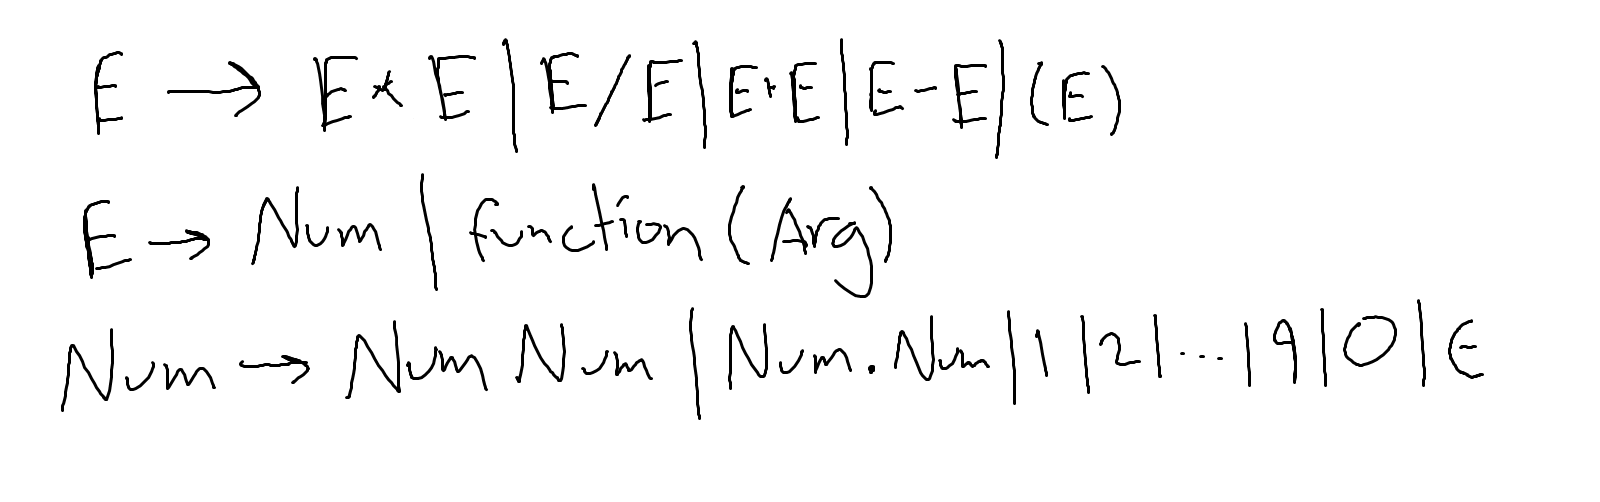 E → E * E | E / E | E + E | E - E | (E)
E → Num | function (Arg)
Num → Num Num | Num . Num | 1 | 2 | ... | 9 | 0 | ϵ